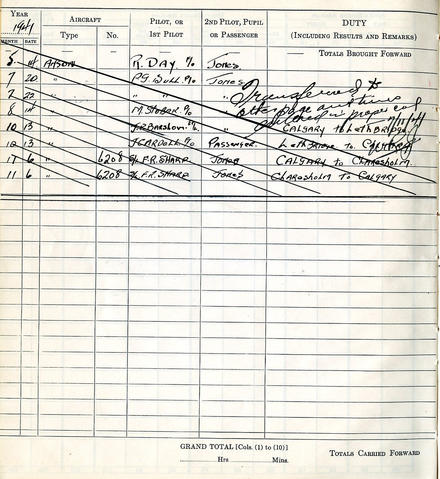 YEAR AIRCRAFT PILOT, OR 2ND PILOT, PUPIL DUTY
1941 1ST PILOT OR PASSENGER (INCLUDING RESULTS AND REMARKS)
MONTH DATE Type No.
— — — — — — TOTALS BROUGHT FORWARD
5 14 ANSON R. DAY % JONES
7 20 " P.G. BULL % JONES
7 22 " " " Transferred to
8 14 " % " other page and times
10 13 " % " CALGARY to LethBRIDGE
10 13 " % PASSENGER LethBRIDGE to CALGARY
11 6 " 6208 F.R. SHARP JONES CALGARY to CLARESHOLM
11 6 " 6208 F.R. SHARP JONES CLARESHOLM to CALGARY
GRAND TOTAL [Cols. (1) to (10)]
Hrs. Mins. TOTALS CARRIED FORWARD